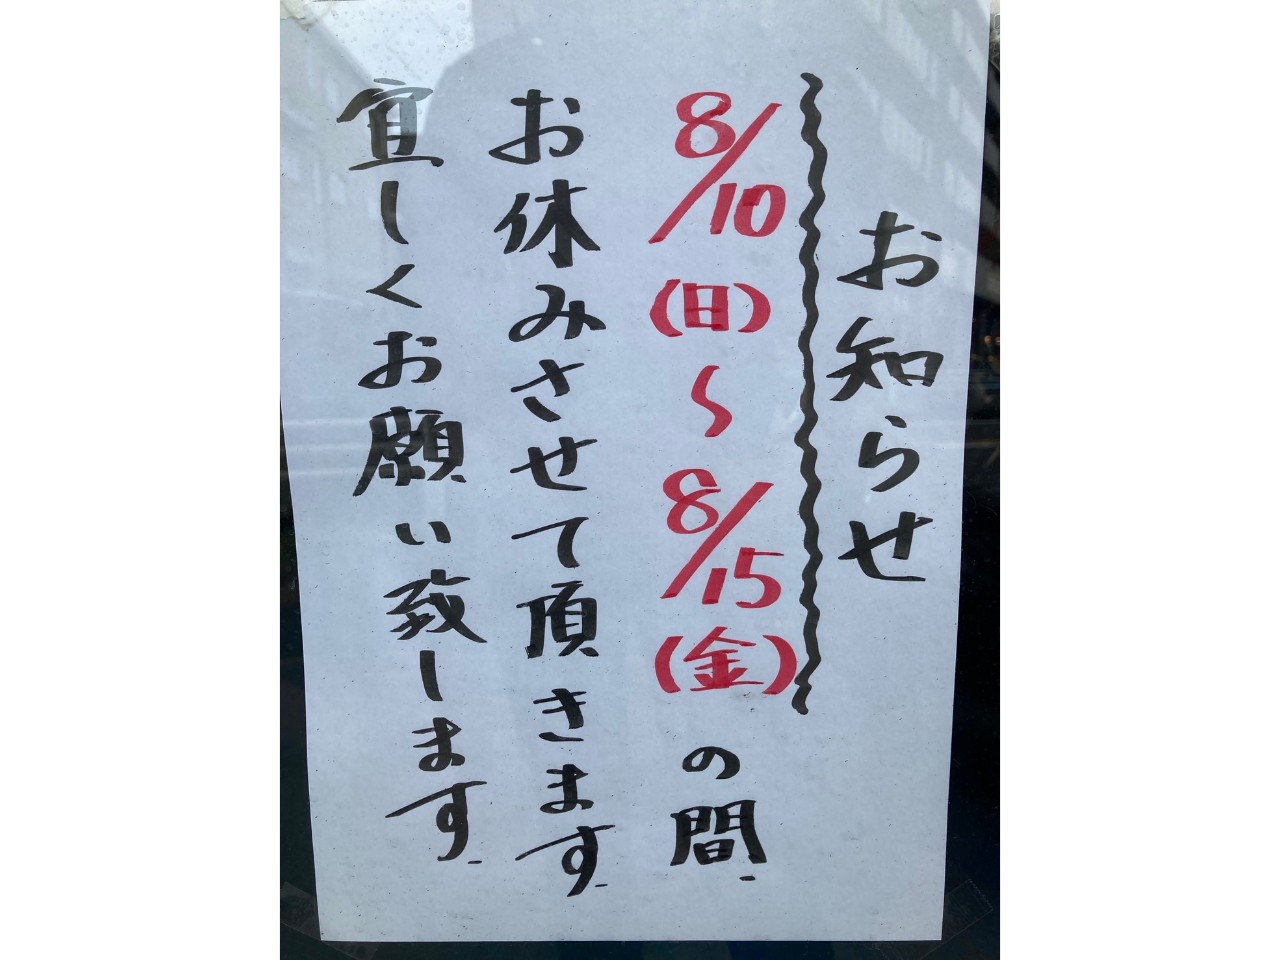 お知らせ
8/10(日)〜8/15(金)の間、
お休みさせて頂きます。
宜しくお願い致します。